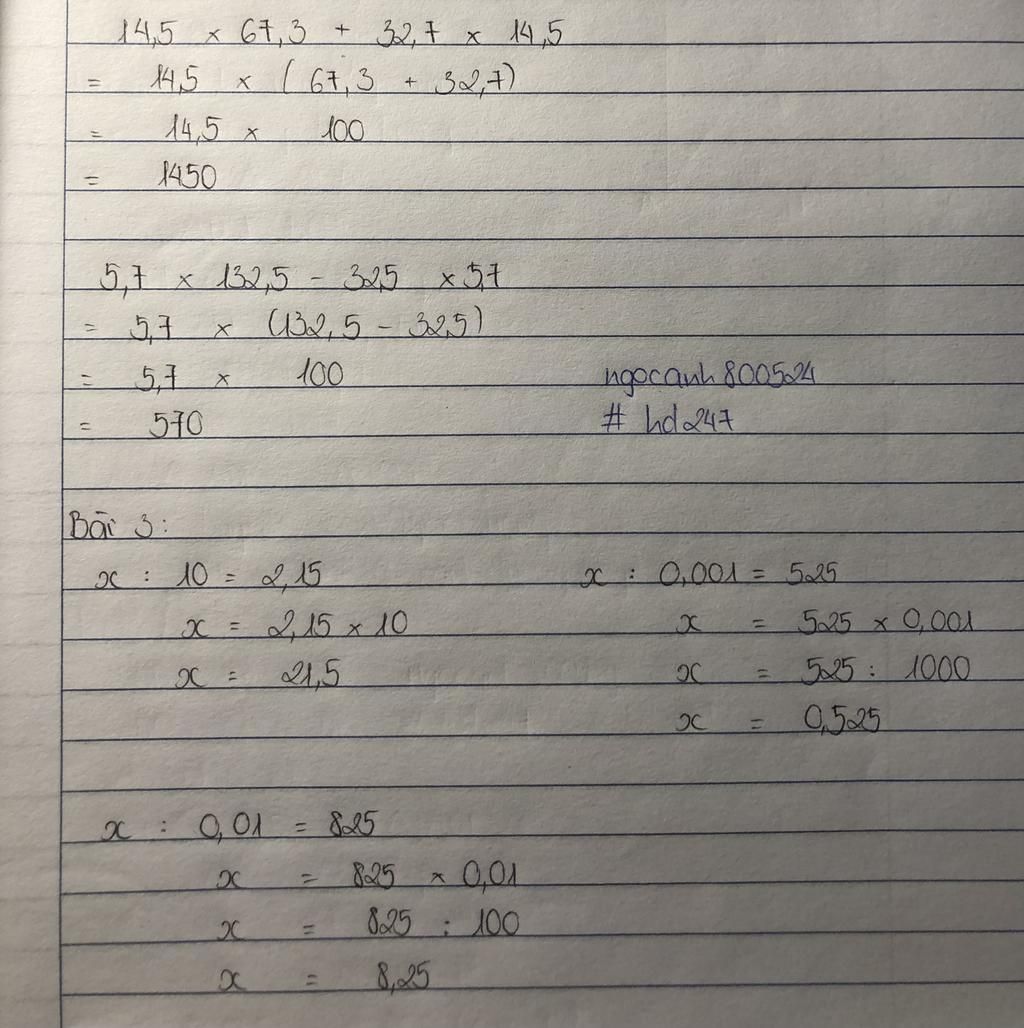 14,5 × 67,3 + 32,7 × 14,5
= 14,5 × (67,3 + 32,7)
= 14,5 × 100
= 1450
5,7 × 132,5 - 32,5 × 5,7
= 5,7 × (132,5 - 32,5)
= 5,7 × 100
= 570
ngocanh800524
# hd247
Bài 3:
x : 10 = 2,15
x = 2,15 × 10
x = 21,5
x : 0,001 = 525
x = 525 × 0,001
x = 525 : 1000
x = 0,525
x : 0,01 = 825
x = 825 × 0,01
x = 825 : 100
x = 8,25